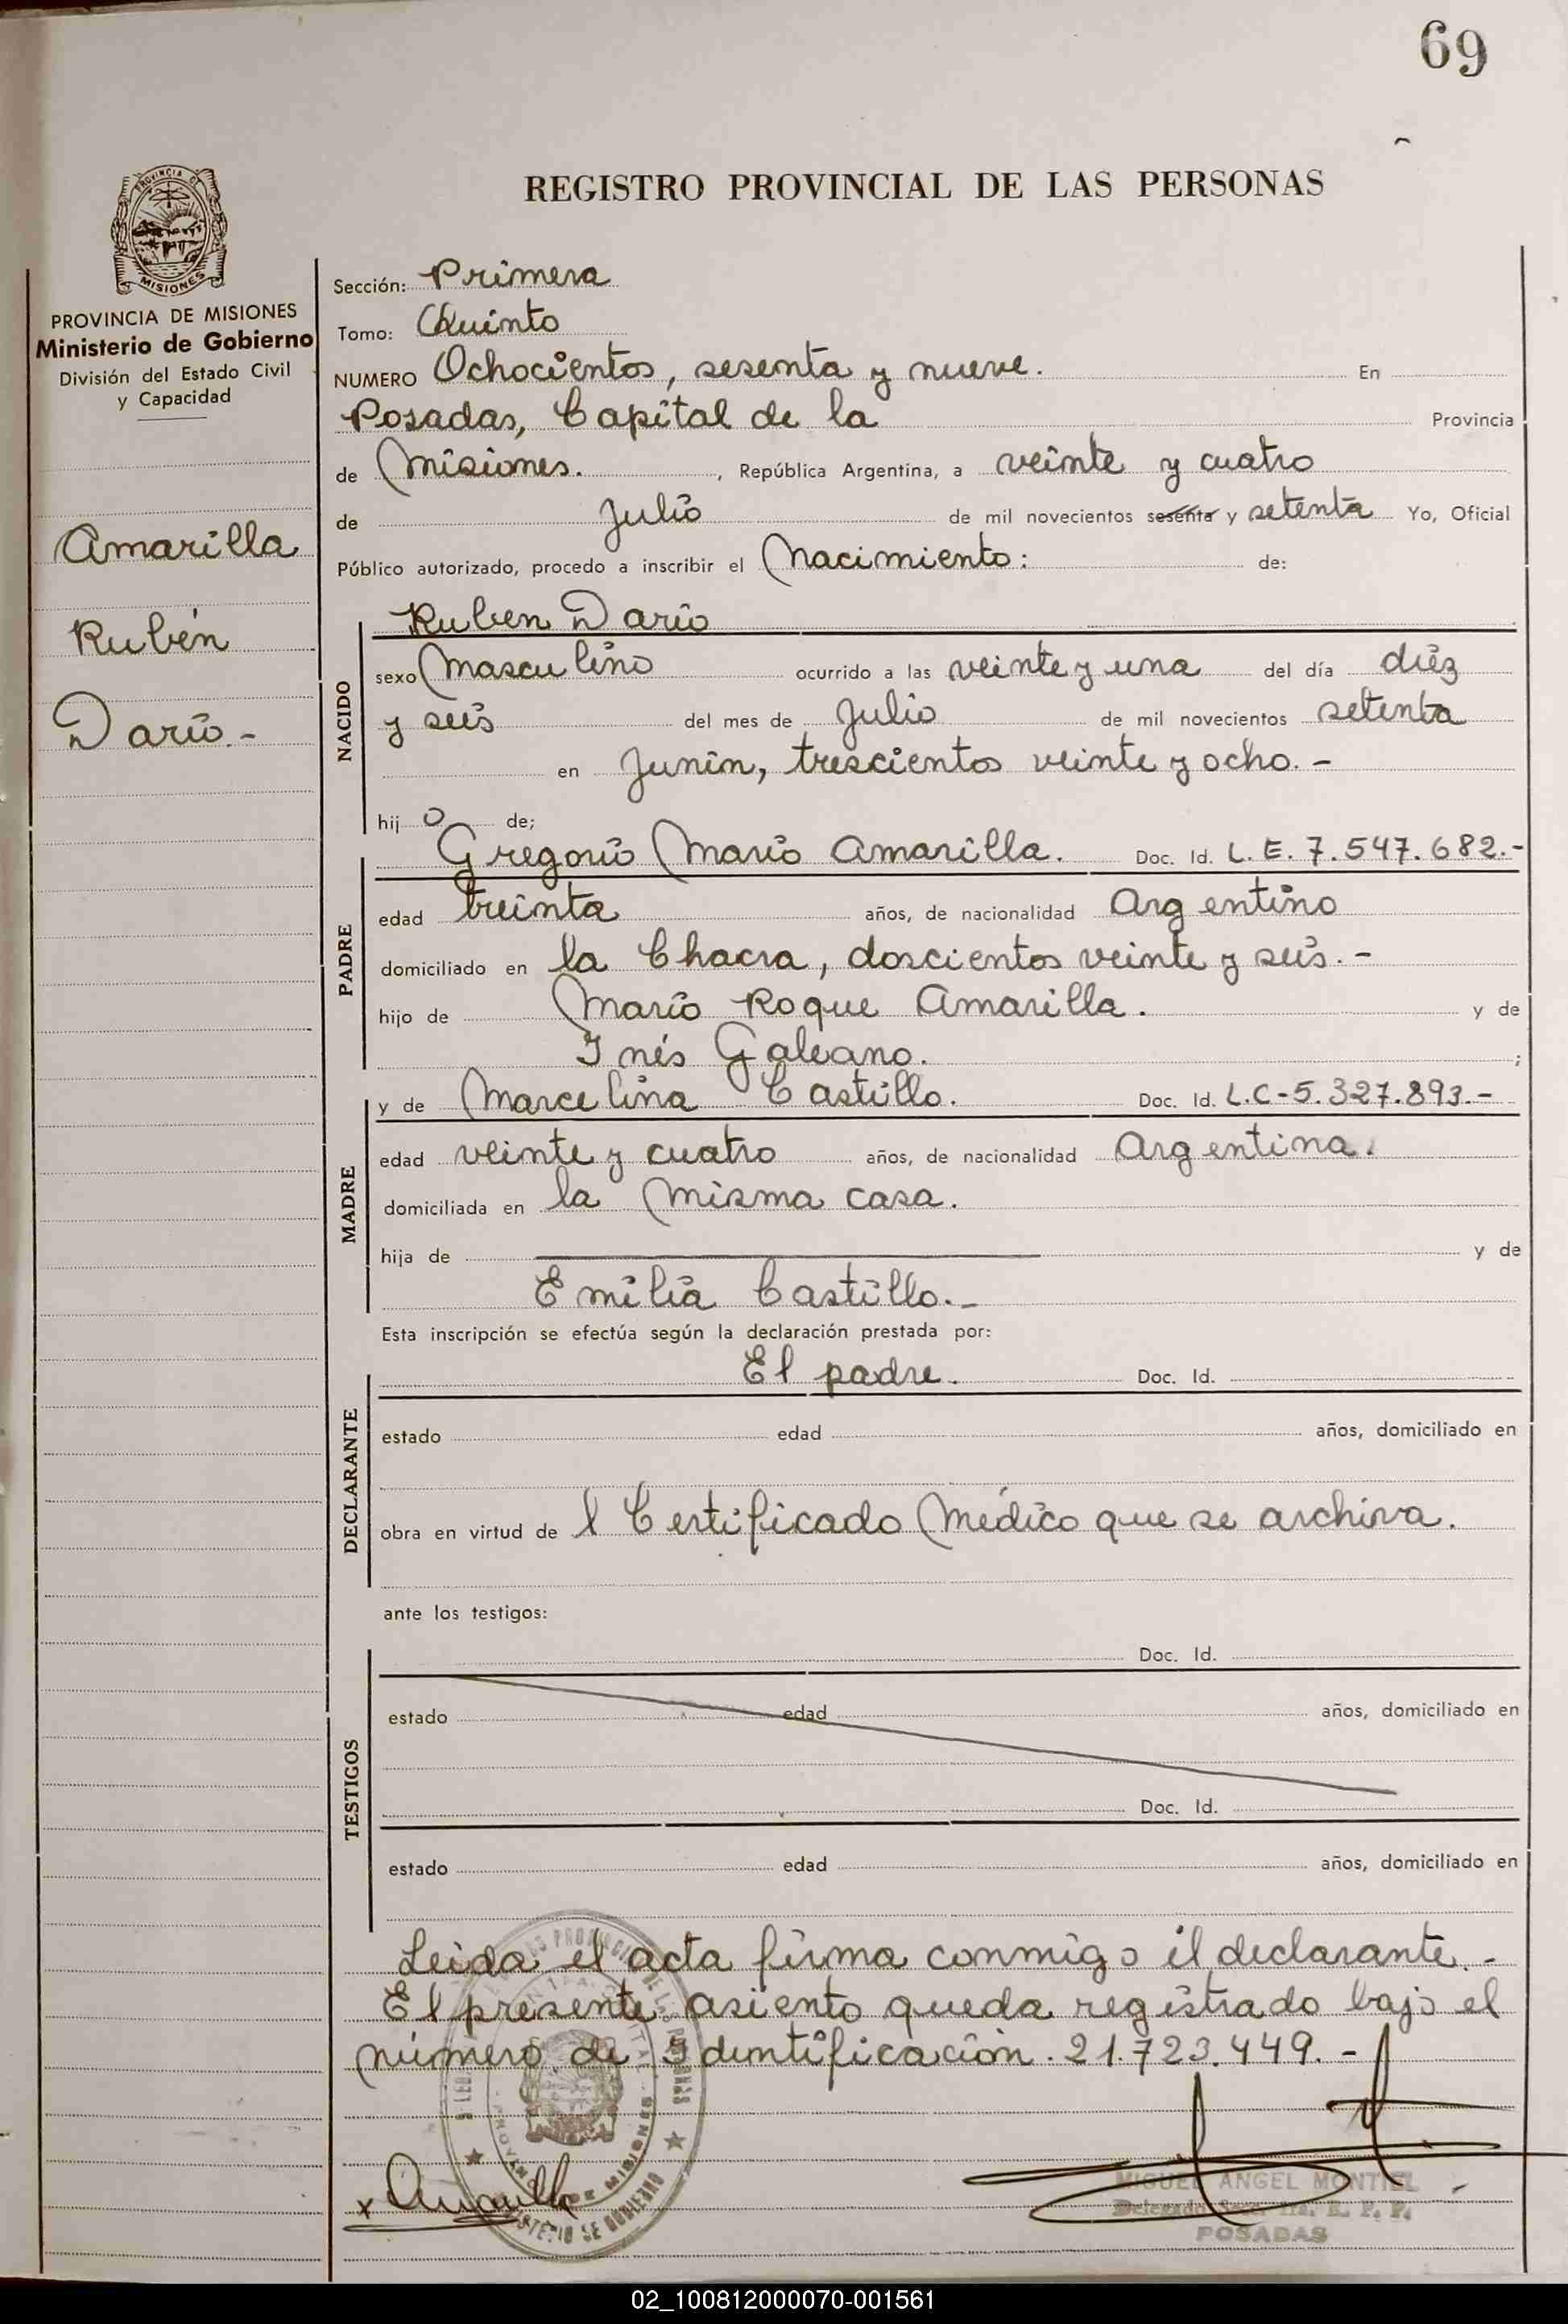 69
REGISTRO PROVINCIAL DE LAS PERSONAS
PROVINCIA DE MISIONES
PROVINCIA DE MISIONES
Ministerio de Gobierno
División del Estado Civil
y Capacidad
Amarilla
Rubén
Darío.-
Sección: Primera
Tomo: Quinto
NUMERO Ochocientos, sesenta y nueve. En
Posadas, Capital de la Provincia
de Misiones. , República Argentina, a veinte y cuatro
de Julio de mil novecientos sesenta y setenta Yo, Oficial
Público autorizado, procedo a inscribir el Nacimiento: de:
NACIDO
Ruben Darío
sexo Masculino ocurrido a las veinte y una del día diéz
y seis del mes de Julio de mil novecientos setenta
en Junín, trescientos veinte y ocho.-
hij o de;
PADRE
Gregorio Mario Amarilla. Doc. Id. L.E. 7.547.682.-
edad treinta años, de nacionalidad Argentino
domiciliado en la Chacra, doscientos veinte y seis.-
hijo de Mario Roque Amarilla. y de
Inés Galeano. ;
MADRE
y de Marcelina Castillo. Doc. Id. L.C-5.327.893.-
edad veinte y cuatro años, de nacionalidad Argentina.
domiciliada en la misma casa.
hija de y de
Emilia Castillo.-
Esta inscripción se efectúa según la declaración prestada por:
DECLARANTE
El padre. Doc. Id.
estado edad años, domiciliado en
obra en virtud de l Certificado Médico que se archiva.
ante los testigos:
TESTIGOS
Doc. Id.
estado edad años, domiciliado en
Doc. Id.
estado edad años, domiciliado en
Leida el acta firma conmigo el declarante.-
El presente asiento queda registrado bajo el
número de Identificación. 21.723.449.-
x Amarilla
MIGUEL ANGEL MONTIEL
Delegado Secc. 1ra. R. P. P.
POSADAS
02_100812000070-001561